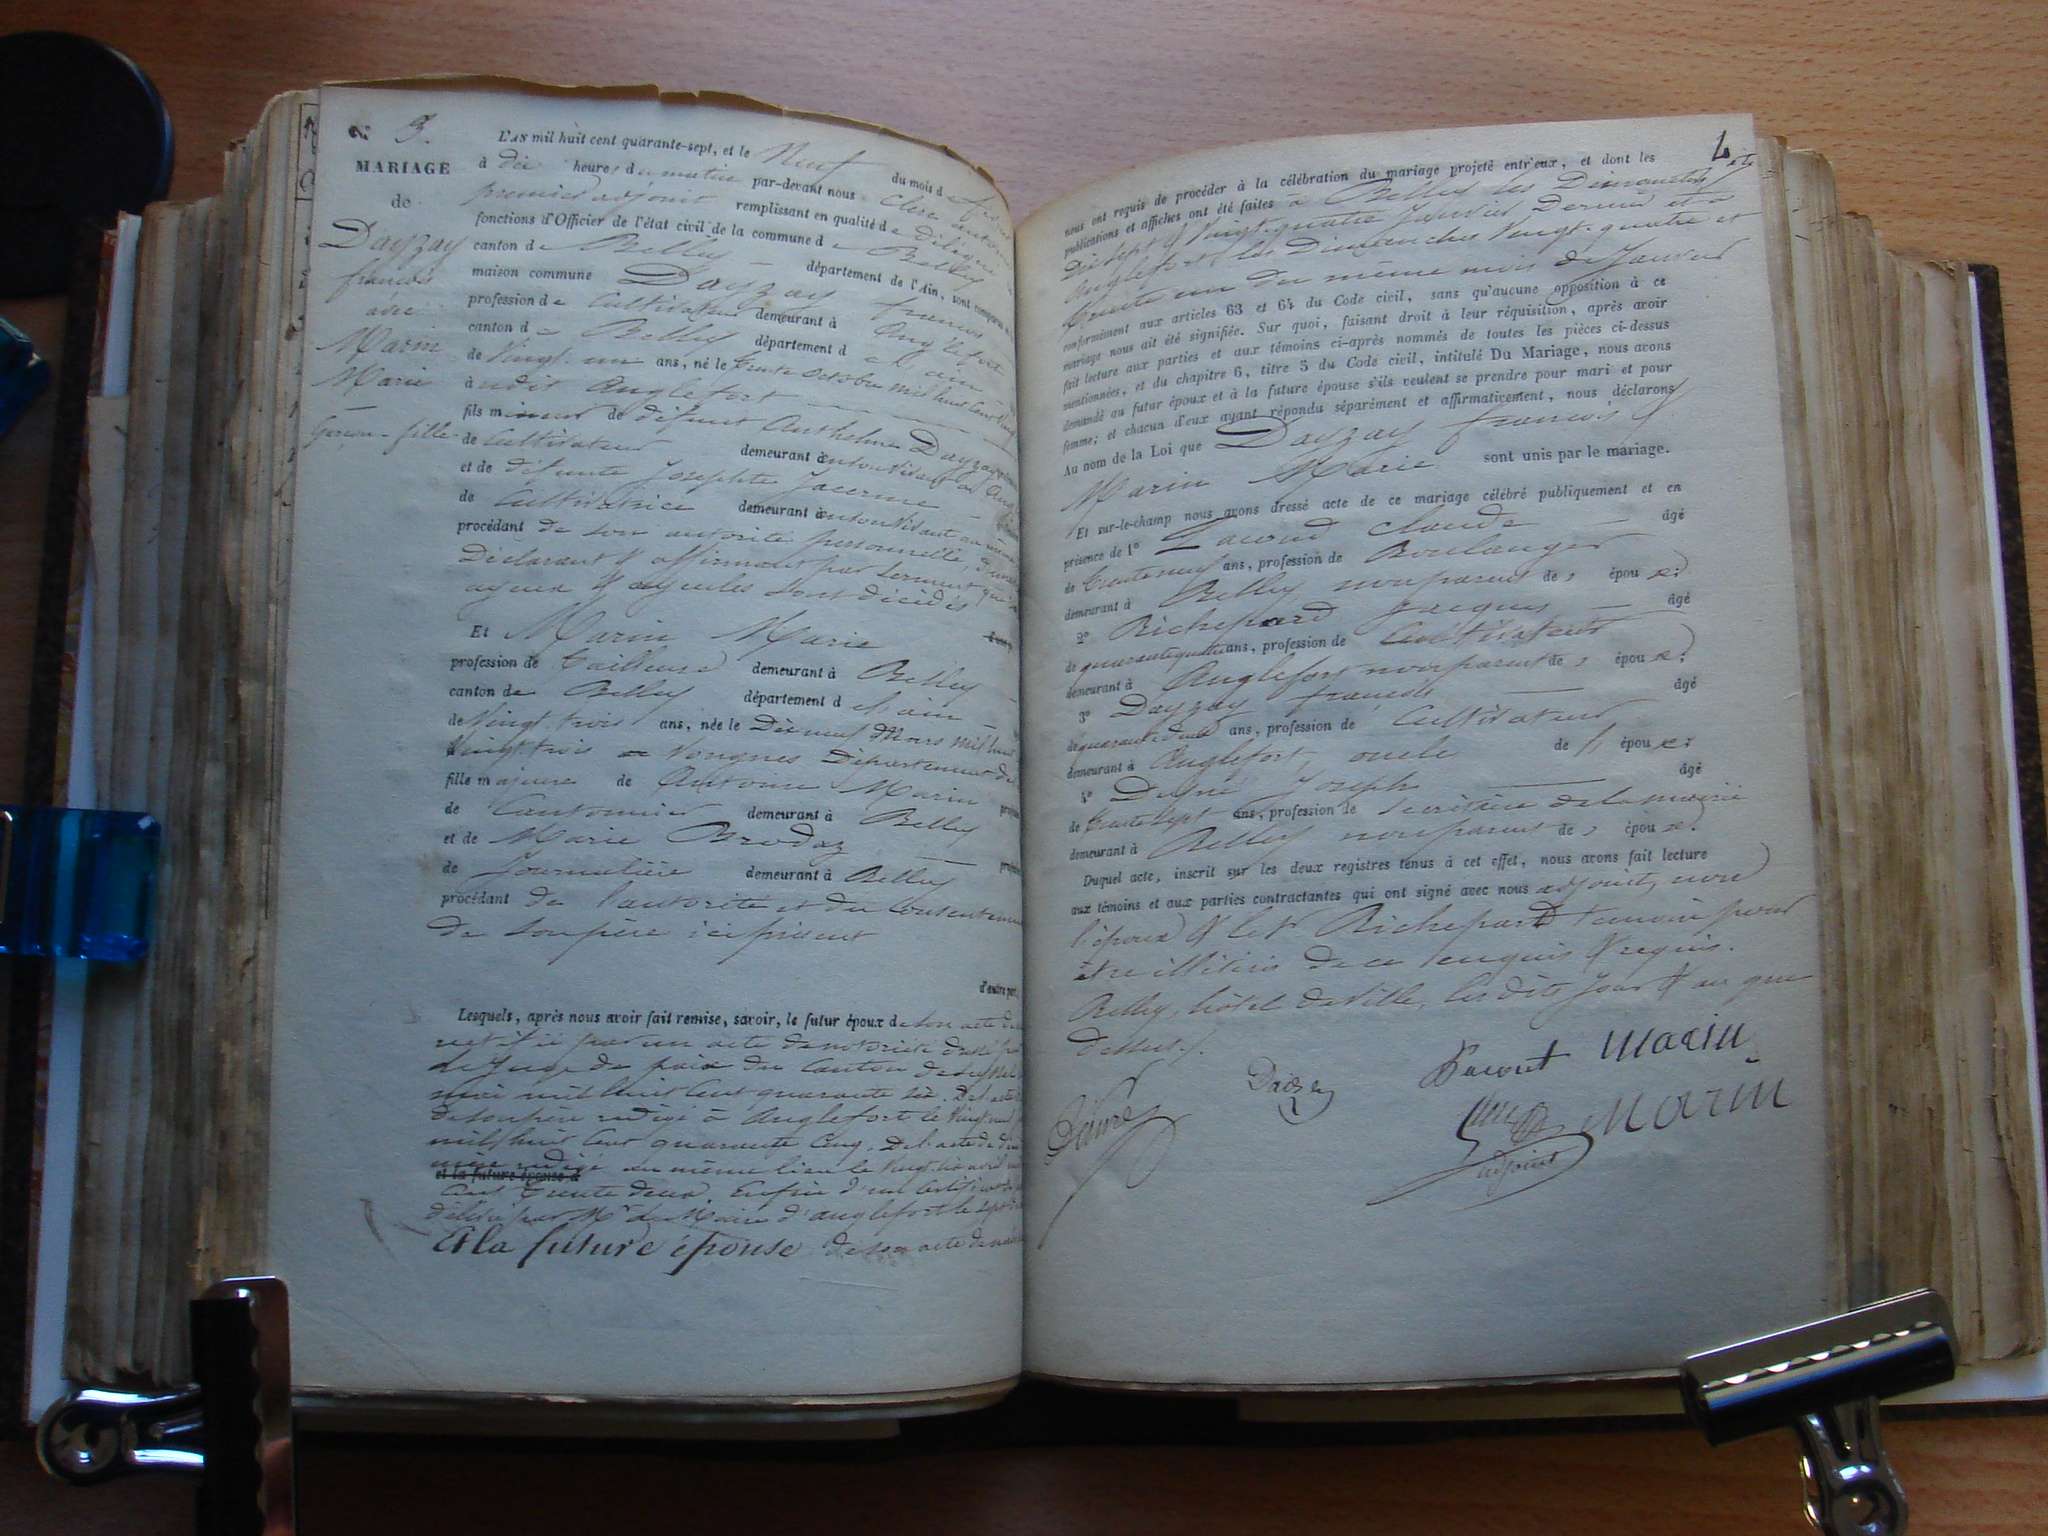 3.
MARIAGE
de
Dayzay
francois
avec
Marin
Marie
Garçon - fille
L'AN mil huit cent quarante-sept, et le Neuf du mois de
à dix heures du matin par-devant nous Clerc
premier adjoint remplissant en qualité de délégué
fonctions d'Officier de l'état civil de la commune de Belley
canton de Belley département de l'Ain, sont comparus
maison commune Dayzay francois
profession de Cultivateur demeurant à Anglefort
canton de Belley département de l'ain
de Vingt-un ans, né le trente Octobre mil huit cent vingt
audit Anglefort
fils mineur de défunt Anthelme Dayzay
de Cultivateur demeurant en son vivant à
et de défunte Josephte
de Cultivatrice demeurant en son vivant au
procédant de son autorité personnelle,
Déclarant & affirmant par serment que
ayeux & ayeules sont décédés
Et Marin Marie
profession de tailleuse demeurant à Belley
canton de Belley département de l'ain
de Vingt-trois ans, née le Dix neuf Mars mil huit
Vingt trois à Vongnes Département de
fille majeure de Antoine Marin
de Cantonnier demeurant à Belley
et de Marie Brodaz
de Journalière demeurant à Belley
procédant de l'autorité et du consentement
de son père ici présent
d'autre part,
Lesquels, après nous avoir fait remise, savoir, le futur époux de son acte de
rectifié par un acte de notoriété dressé par
le Juge de paix du Canton de Seyssel
mai mil huit cent quarante six. De l'acte
de son père rédigé à Anglefort le Vingt neuf
mil huit cent quarante Cinq. De l'acte de
mère rédigé au même lieu le Vingt avril
et la future épouse d
cent trente deux. Enfin d'un certificat
délivré par Mr. le Maire d'anglefort le
Et la future épouse de son acte de
nous ont requis de procéder à la célébration du mariage projeté entr'eux, et dont les
publications et affiches ont été faites à Belley les Dimanches
Dix sept & Vingt-quatre Janvier Dernier et à
Anglefort les Dimanches Vingt-quatre et
trente un du même mois de Janvier
conformément aux articles 63 et 64 du Code civil, sans qu'aucune opposition à ce
mariage nous ait été signifiée. Sur quoi, faisant droit à leur réquisition, après avoir
fait lecture aux parties et aux témoins ci-après nommés de toutes les pièces ci-dessus
mentionnées, et du chapitre 6, titre 5 du Code civil, intitulé Du Mariage, nous avons
demandé au futur époux et à la future épouse s'ils veulent se prendre pour mari et pour
femme; et chacun d'eux ayant répondu séparément et affirmativement, nous déclarons
Au nom de la Loi que Dayzay francois &
Marin Marie sont unis par le mariage.
Et sur-le-champ nous avons dressé acte de ce mariage célébré publiquement et en
présence de 1° Claude âgé
de trente neuf ans, profession de Boulanger
demeurant à Belley non parent des époux;
2° Richepard Jacques âgé
de quarante quatre ans, profession de Cultivateur
demeurant à Anglefort non parent des époux;
3° Dayzay francois âgé
de quarante deux ans, profession de Cultivateur
demeurant à Anglefort, oncle de l'époux;
4° Joseph âgé
de trente sept ans, profession de Secrétaire de la mairie
demeurant à Belley non parent des époux.
Duquel acte, inscrit sur les deux registres tenus à cet effet, nous avons fait lecture
aux témoins et aux parties contractantes qui ont signé avec nous adjoint, non
l'époux & le Sr Richepard témoin pour
être illitérés de ce enquis & requis.
Belley, hôtel de Ville, les dits Jour & an que
dessus.
Marin
Marin
adjoint